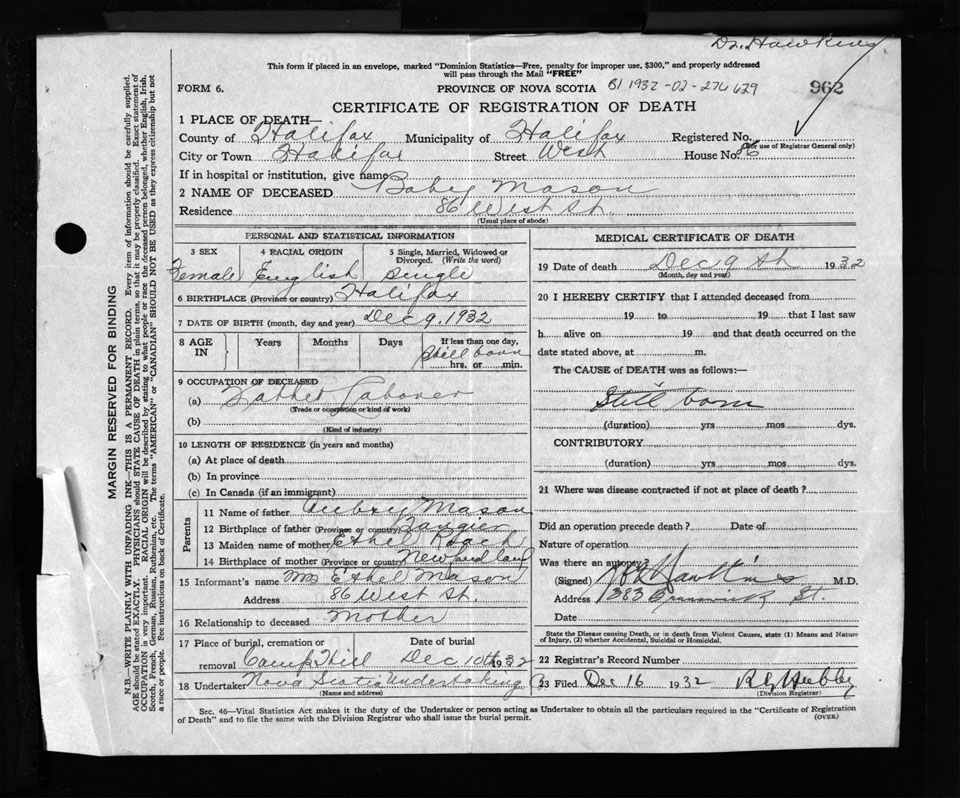 Dr. Hawkins
This form if placed in an envelope, marked "Dominion Statistics—Free, penalty for improper use, $300," and properly addressed
will pass through the Mail "FREE"
FORM 6.
PROVINCE OF NOVA SCOTIA
962
CERTIFICATE OF REGISTRATION OF DEATH
1 PLACE OF DEATH—
County of Halifax Municipality of Halifax Registered No.
(For use of Registrar General only)
City or Town Halifax Street West House No. 86
If in hospital or institution, give name
2 NAME OF DECEASED Baby Mason
Residence 86 West St.
(Usual place of abode)
PERSONAL AND STATISTICAL INFORMATION
3 SEX 4 RACIAL ORIGIN 5 Single, Married, Widowed or
Divorced. (Write the word)
Female English Single
6 BIRTHPLACE (Province or country) Halifax
7 DATE OF BIRTH (month, day and year) Dec 9, 1932
8 AGE IN Years Months Days If less than one day,
Still born
hrs. or min.
9 OCCUPATION OF DECEASED
(a) Father Laborer
(Trade or occupation or kind of work)
(b)
(Kind of industry)
10 LENGTH OF RESIDENCE (in years and months)
(a) At place of death
(b) In province
(c) In Canada (if an immigrant)
Parents
11 Name of father Aubry Mason
12 Birthplace of father (Province or country)
13 Maiden name of mother Ethel Roach
14 Birthplace of mother (Province or country) Newfoundland
15 Informant's name Mrs Ethel Mason
Address 86 West St.
16 Relationship to deceased Mother
17 Place of burial, cremation or Date of burial
removal Camp Hill Dec 10th 1932
18 Undertaker Nova Scotia Undertaking
MEDICAL CERTIFICATE OF DEATH
19 Date of death Dec 9th 1932
(Month, day and year)
20 I HEREBY CERTIFY that I attended deceased from
19 to 19 that I last saw
h alive on 19 and that death occurred on the
date stated above, at m.
The CAUSE of DEATH was as follows:—
Still born
(duration) yrs mos dys.
CONTRIBUTORY
(duration) yrs mos dys.
21 Where was disease contracted if not at place of death?
Did an operation precede death? Date of
Nature of operation
Was there an autopsy?
(Signed) Hawkins M.D.
Address 383 Brunswick St.
Date
State the Disease causing Death, or in death from Violent Causes, state (1) Means and Nature
of Injury, (2) whether Accidental, Suicidal or Homicidal.
22 Registrar's Record Number
23 Filed Dec 16 1932
(Division Registrar)
Sec. 46—Vital Statistics Act makes it the duty of the Undertaker or person acting as Undertaker to obtain all the particulars required in the "Certificate of Registration
of Death" and to file the same with the Division Registrar who shall issue the burial permit.
(OVER)
MARGIN RESERVED FOR BINDING
N.B.—WRITE PLAINLY WITH UNFADING INK—THIS IS A PERMANENT RECORD. Every item of information should be carefully supplied.
AGE should be stated EXACTLY. PHYSICIANS should STATE CAUSE OF DEATH in plain terms, so that it may be properly classified. Exact statement of
OCCUPATION is very important. RACIAL ORIGIN will be described by stating to what people or race the deceased person belonged, whether English, Irish,
Scotch, French, German, Russian, Ruthenian, etc. The terms "AMERICAN" or "CANADIAN" SHOULD NOT BE USED as they express citizenship but not
a race or people. See instructions on back of Certificate.